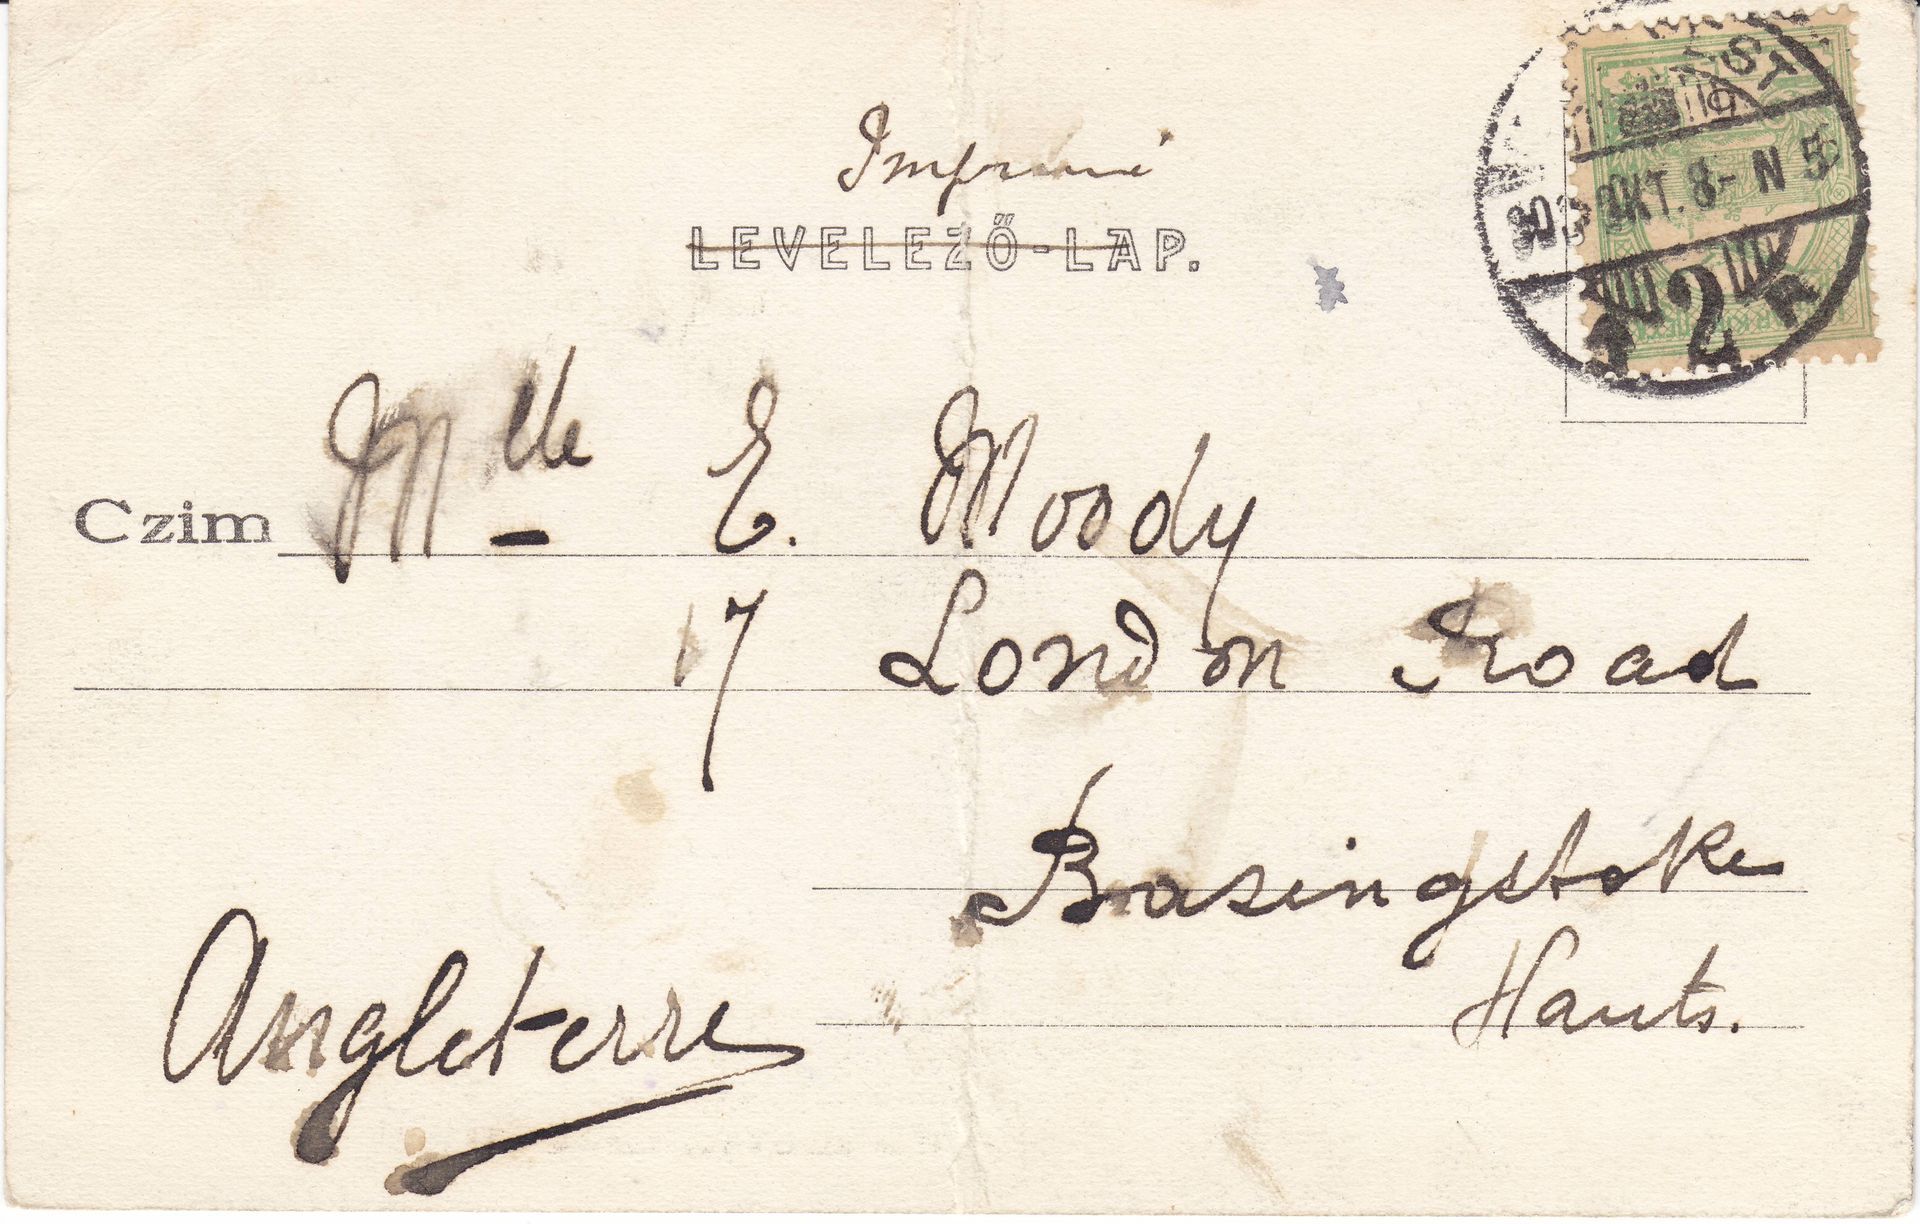 Imprimé
LEVELEZŐ-LAP.
OKT. 8-N 5
2
Czim Mlle E. Moody
17 London Road
Basingstoke
Hants.
Angleterre